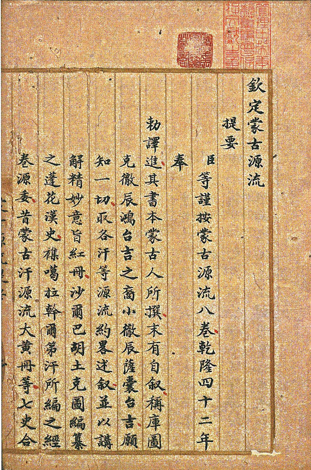 欽定蒙古源流
提要
臣等謹按蒙古源流八卷乾隆四十二年
奉
勅譯進其書本蒙古人所撰末有自叙稱庫圖
克徹辰鴻台吉之裔小徹辰薩囊台吉願
知一切取各汗等源流約畧述叙並以講
解精妙意旨紅冊沙爾巴胡土克圖編纂
之蓮花漢史雜噶拉幹爾第汗所編之經
卷源委昔蒙古汗源流大黄冊等七史合